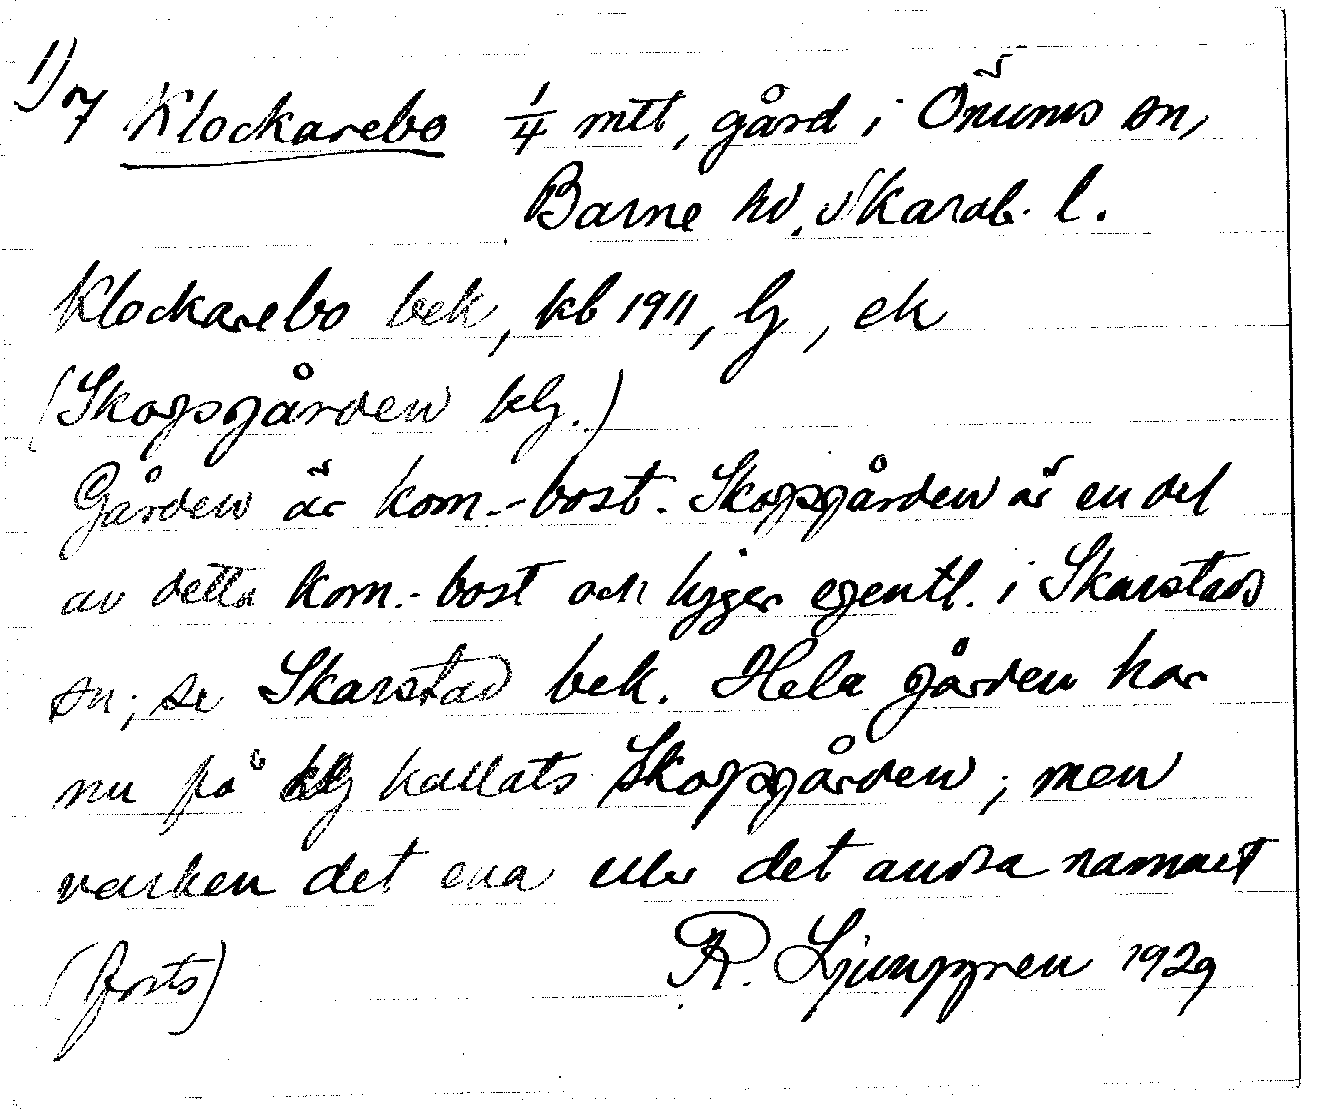 1) 7 Klockarebo 1/4 mtl, gård i Önums sn,
Barne hd. Skarab. l.
Klockarebo bek, kb 1911, lj, ek
(Skopsgården klj.)
Gården är kom.-bost. Skopsgården är en del
av detta kom.-bost och ligger egentl. i Skarstads
sn; se Skarstad bek. Hela gården har
nu på klj kallats Skopsgården; men
varken det ena eller det andra namnet
(forts) R. Ljunggren 1929